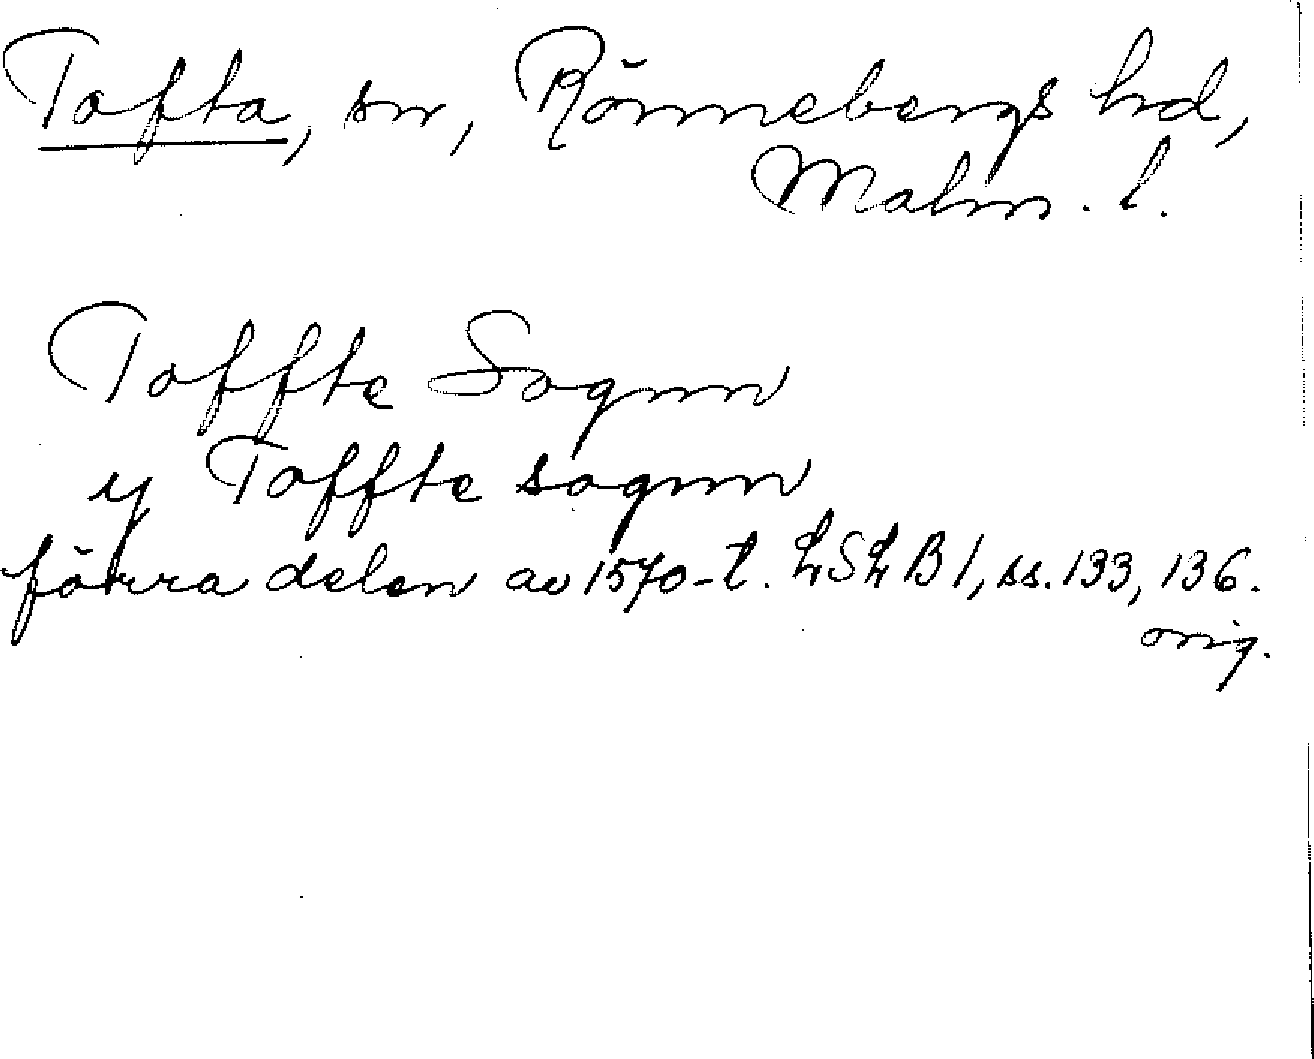 Tofta, sn, Rönnebergs hd,
Malm. l.
Toffte Sognn
y Toffte sognn
förra delen av 1570-t. LSLB 1, ss. 133, 136.
orig.